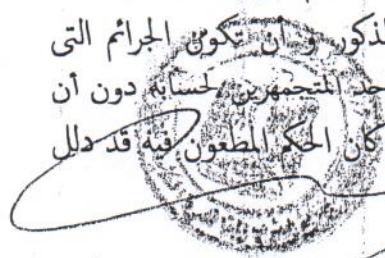 لذكور و أن تكون الجرائم التى
حد المتجمهرين لحسابه دون أن
كان الحكم المطعون فيه قد دلل